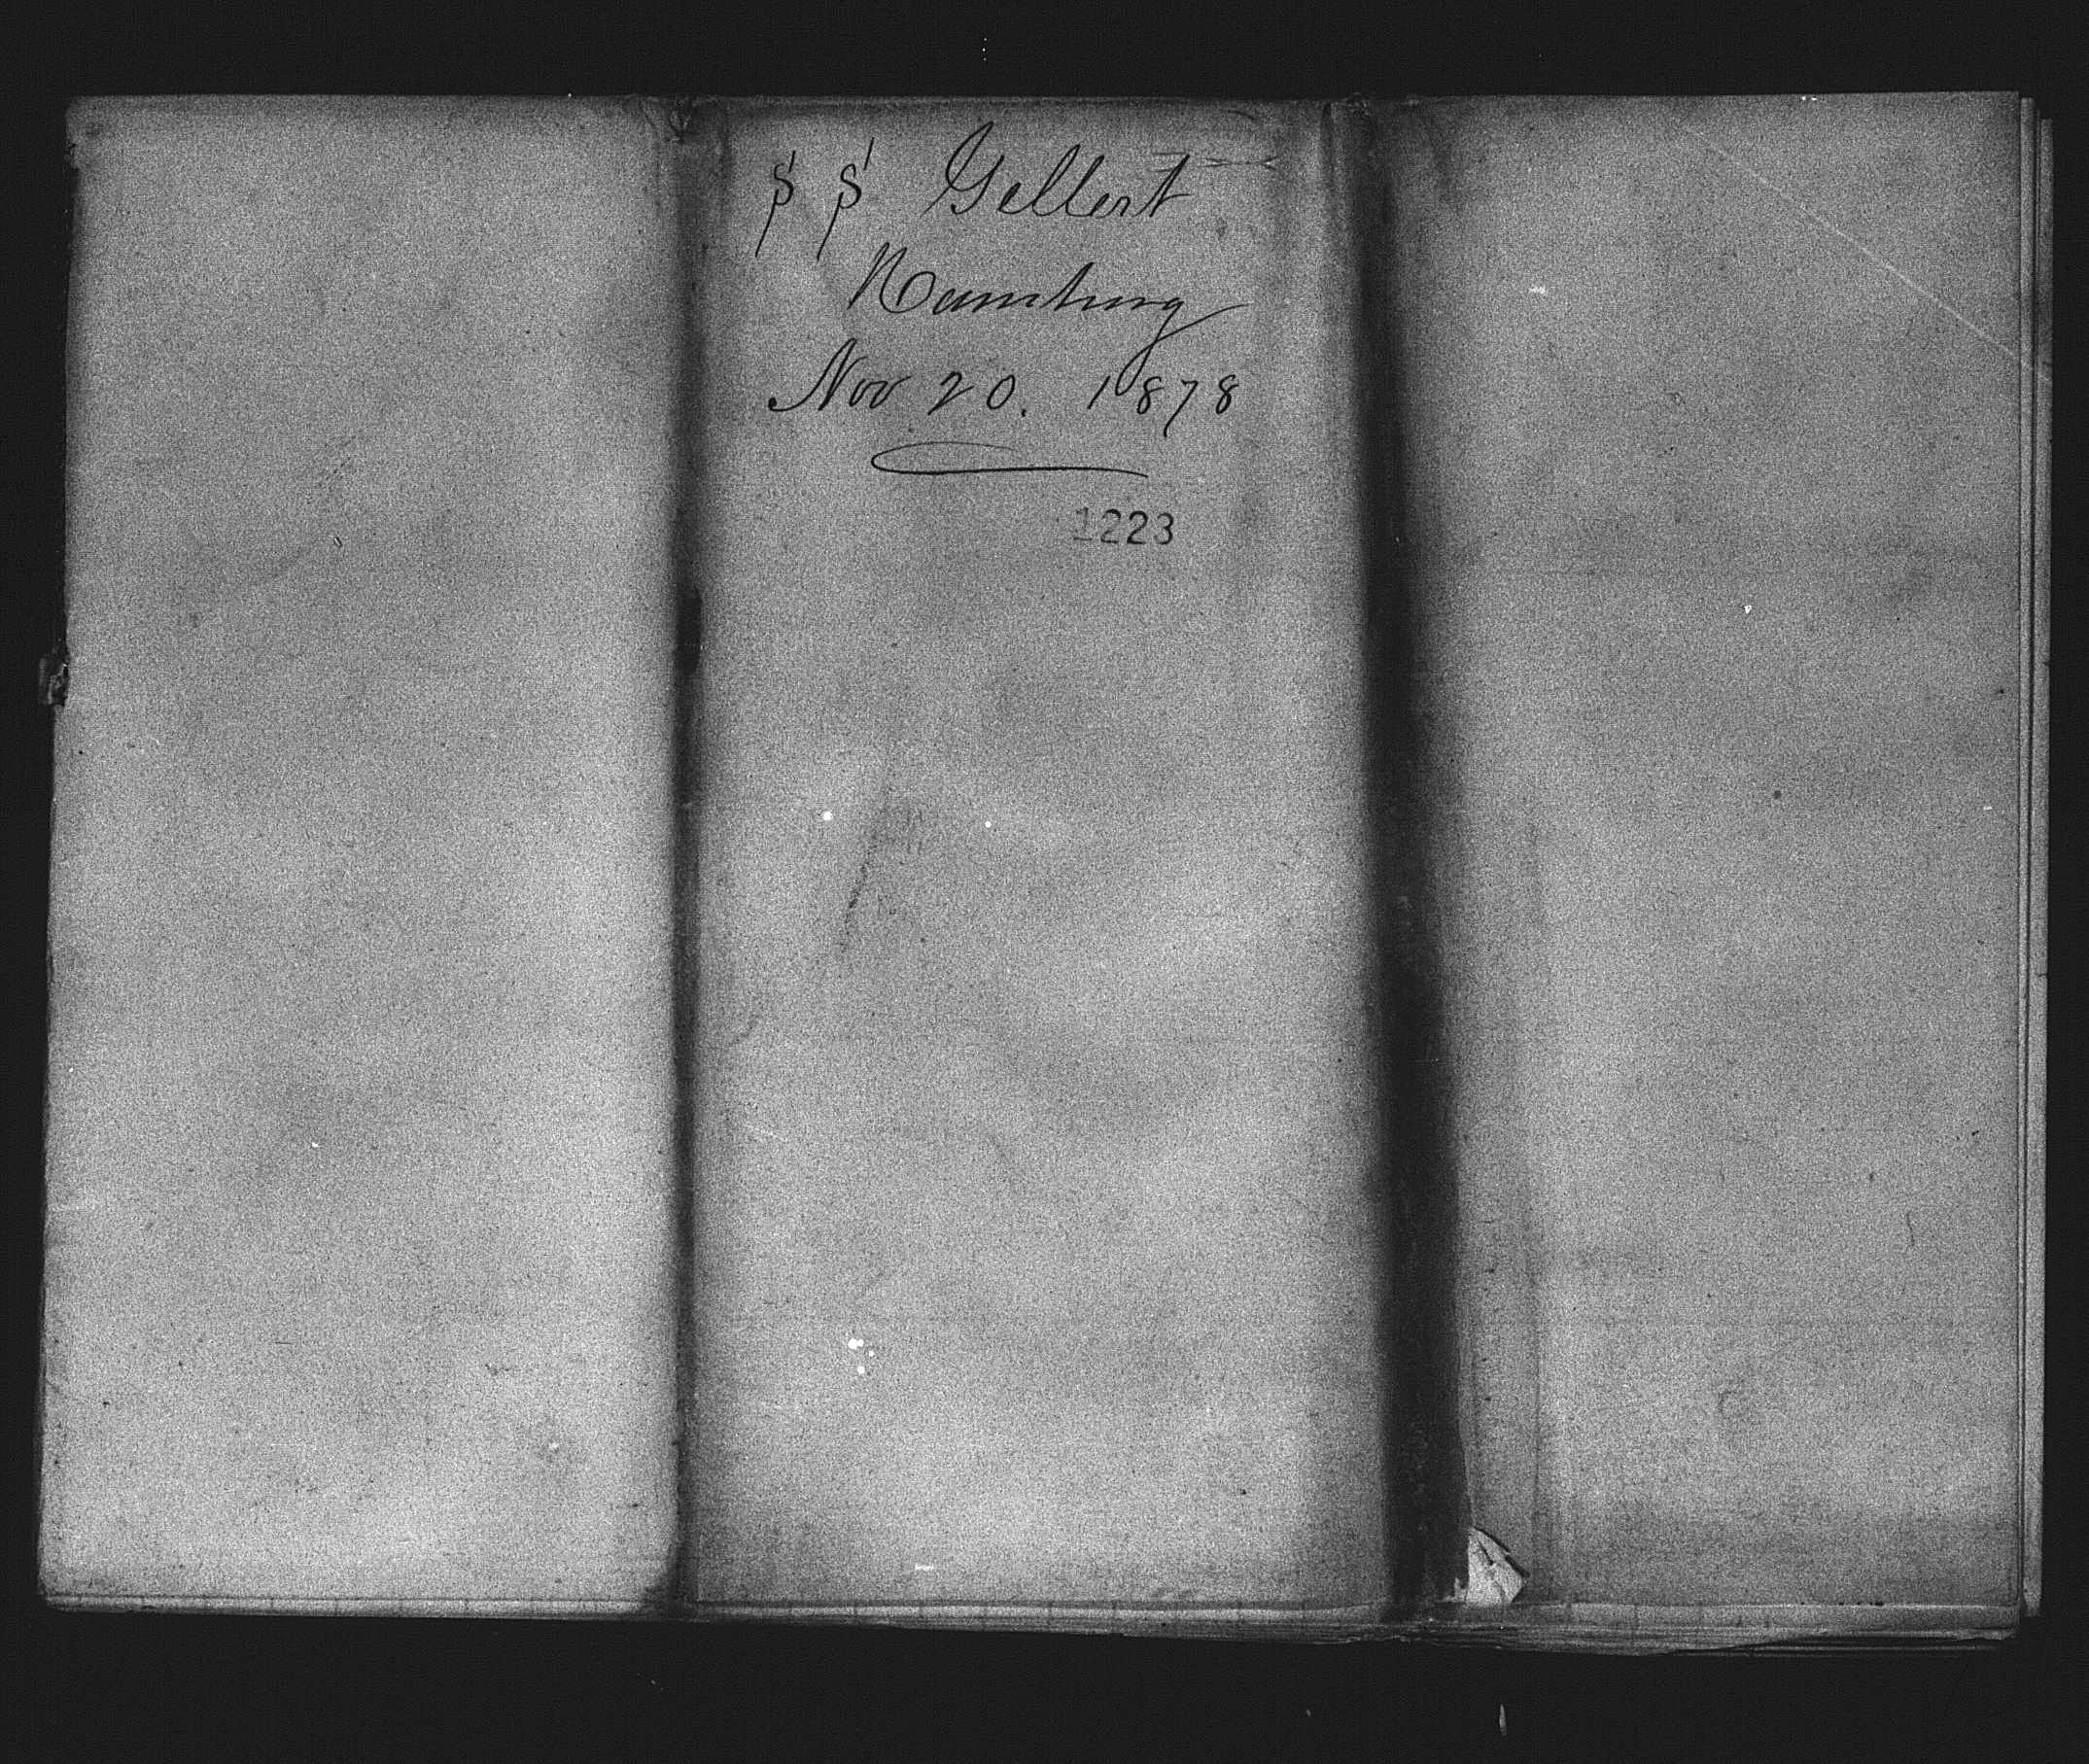 S S Gellert
Hamburg
Nov 20. 1878
1223